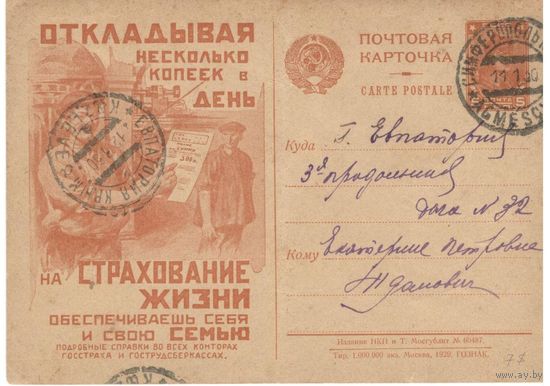 ОТКЛАДЫВАЯ
НЕСКОЛЬКО
КОПЕЕК В
ДЕНЬ
НА СТРАХОВАНИЕ
ЖИЗНИ
ОБЕСПЕЧИВАЕШЬ СЕБЯ
И СВОЮ СЕМЬЮ
ПОДРОБНЫЕ СПРАВКИ ВО ВСЕХ КОНТОРАХ
ГОССТРАХА И ГОСТРУДСБЕРКАССАХ.
ЕВПАТОРИЯ КРЫМ
ПОЧТОВАЯ
КАРТОЧКА
CARTE POSTALE
СИМФЕРОПОЛЬ
11 1 30
5
Куда г. Евпатория
3я продольная
дача N 32
Кому Екатерине Петровне
Жданович
Издание НКП и Т. Мособлит № 60487.
Тир. 1.000.000 экз. Москва, 1929. ГОЗНАК.
www.ay.by